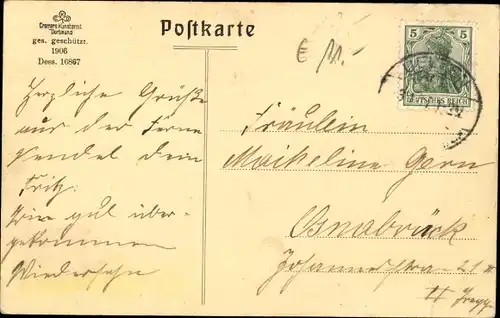 Cramers Kunstanst.
Dortmund
ges. geschützt.
1906
Dess. 16867
Postkarte
5 5
DEUTSCHES REICH
Herzliche Grüße
aus der Ferne
sendet dein
Fritz.
Bin gut über-
gekommen
Wiedersehn
Fräulein
Osnabrück
Johannesstra. 21
II